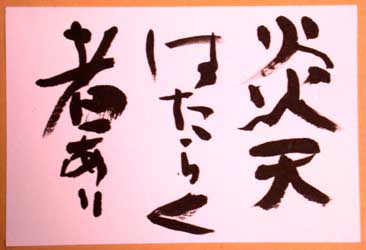 炎天
はたらく
者あり